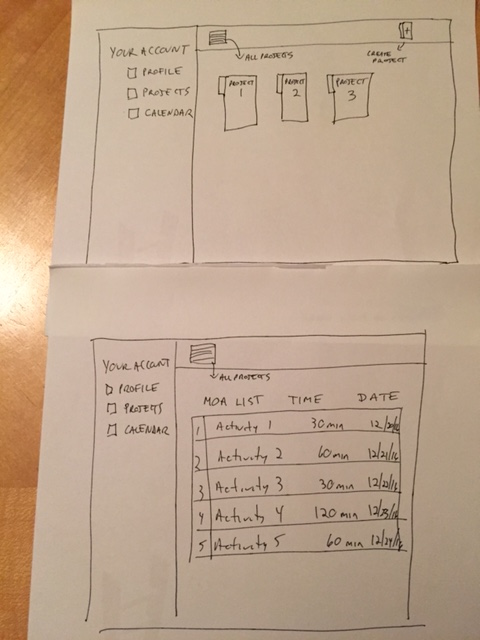 YOUR ACCOUNT
PROFILE
PROJECTS
CALENDAR
ALL PROJECTS
+
CREATE
PROJECT
PROJECT
1
PROJECT
2
PROJECT
3
YOUR ACCOUNT
PROFILE
PROJECTS
CALENDAR
ALL PROJECTS
MOA LIST TIME DATE
1 Activity 1 30 min 12/20/16
2 Activity 2 60 min 12/21/16
3 Activity 3 30 min 12/22/16
4 Activity 4 120 min 12/23/16
5 Activity 5 60 min 12/24/16